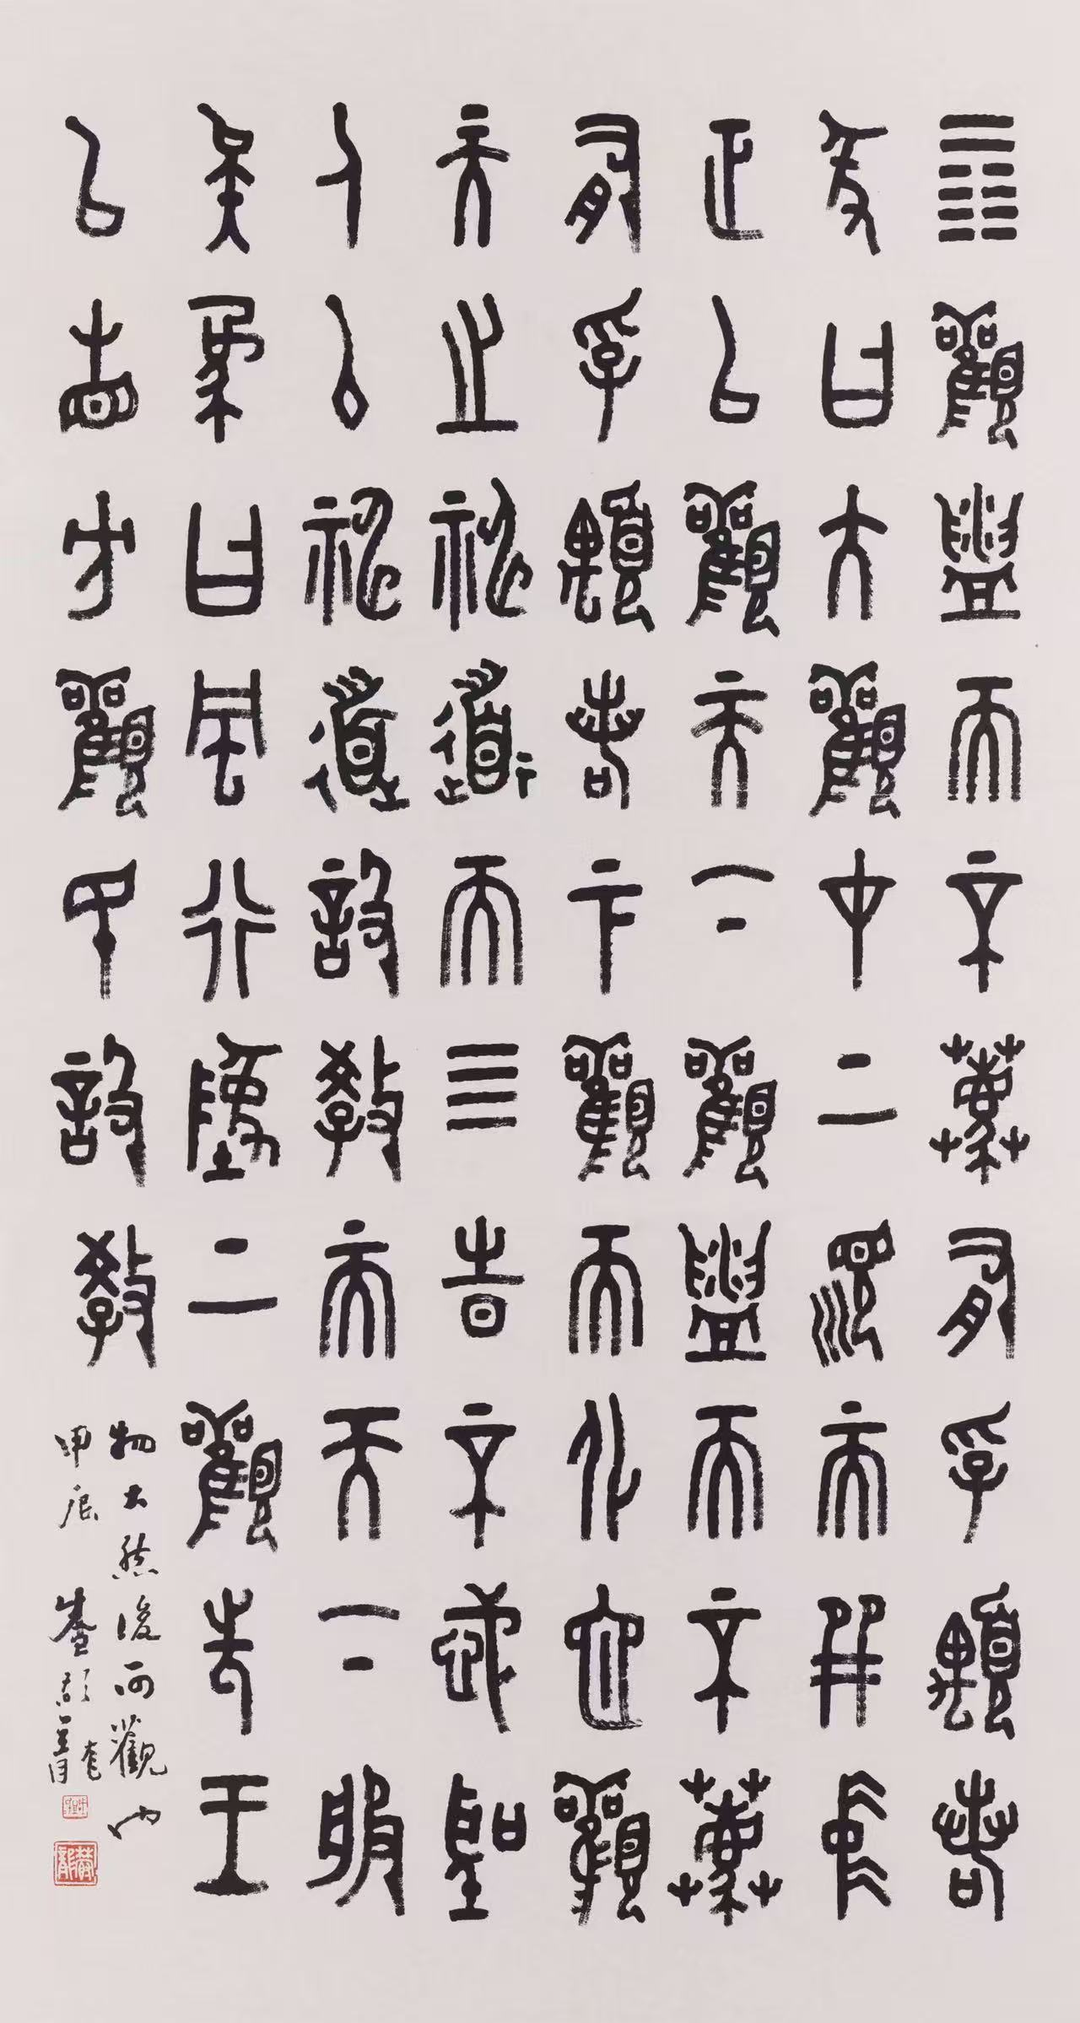 ䷓觀盥而不薦有孚顒若
彖曰大觀在上順而巽中
正以觀天下觀盥而不薦
有孚顒若下觀而化也觀
天之神道而四時不忒聖
人以神道設教而天下服
矣象曰風行地上觀先王
以省方觀民設教
物大然後可觀
甲辰